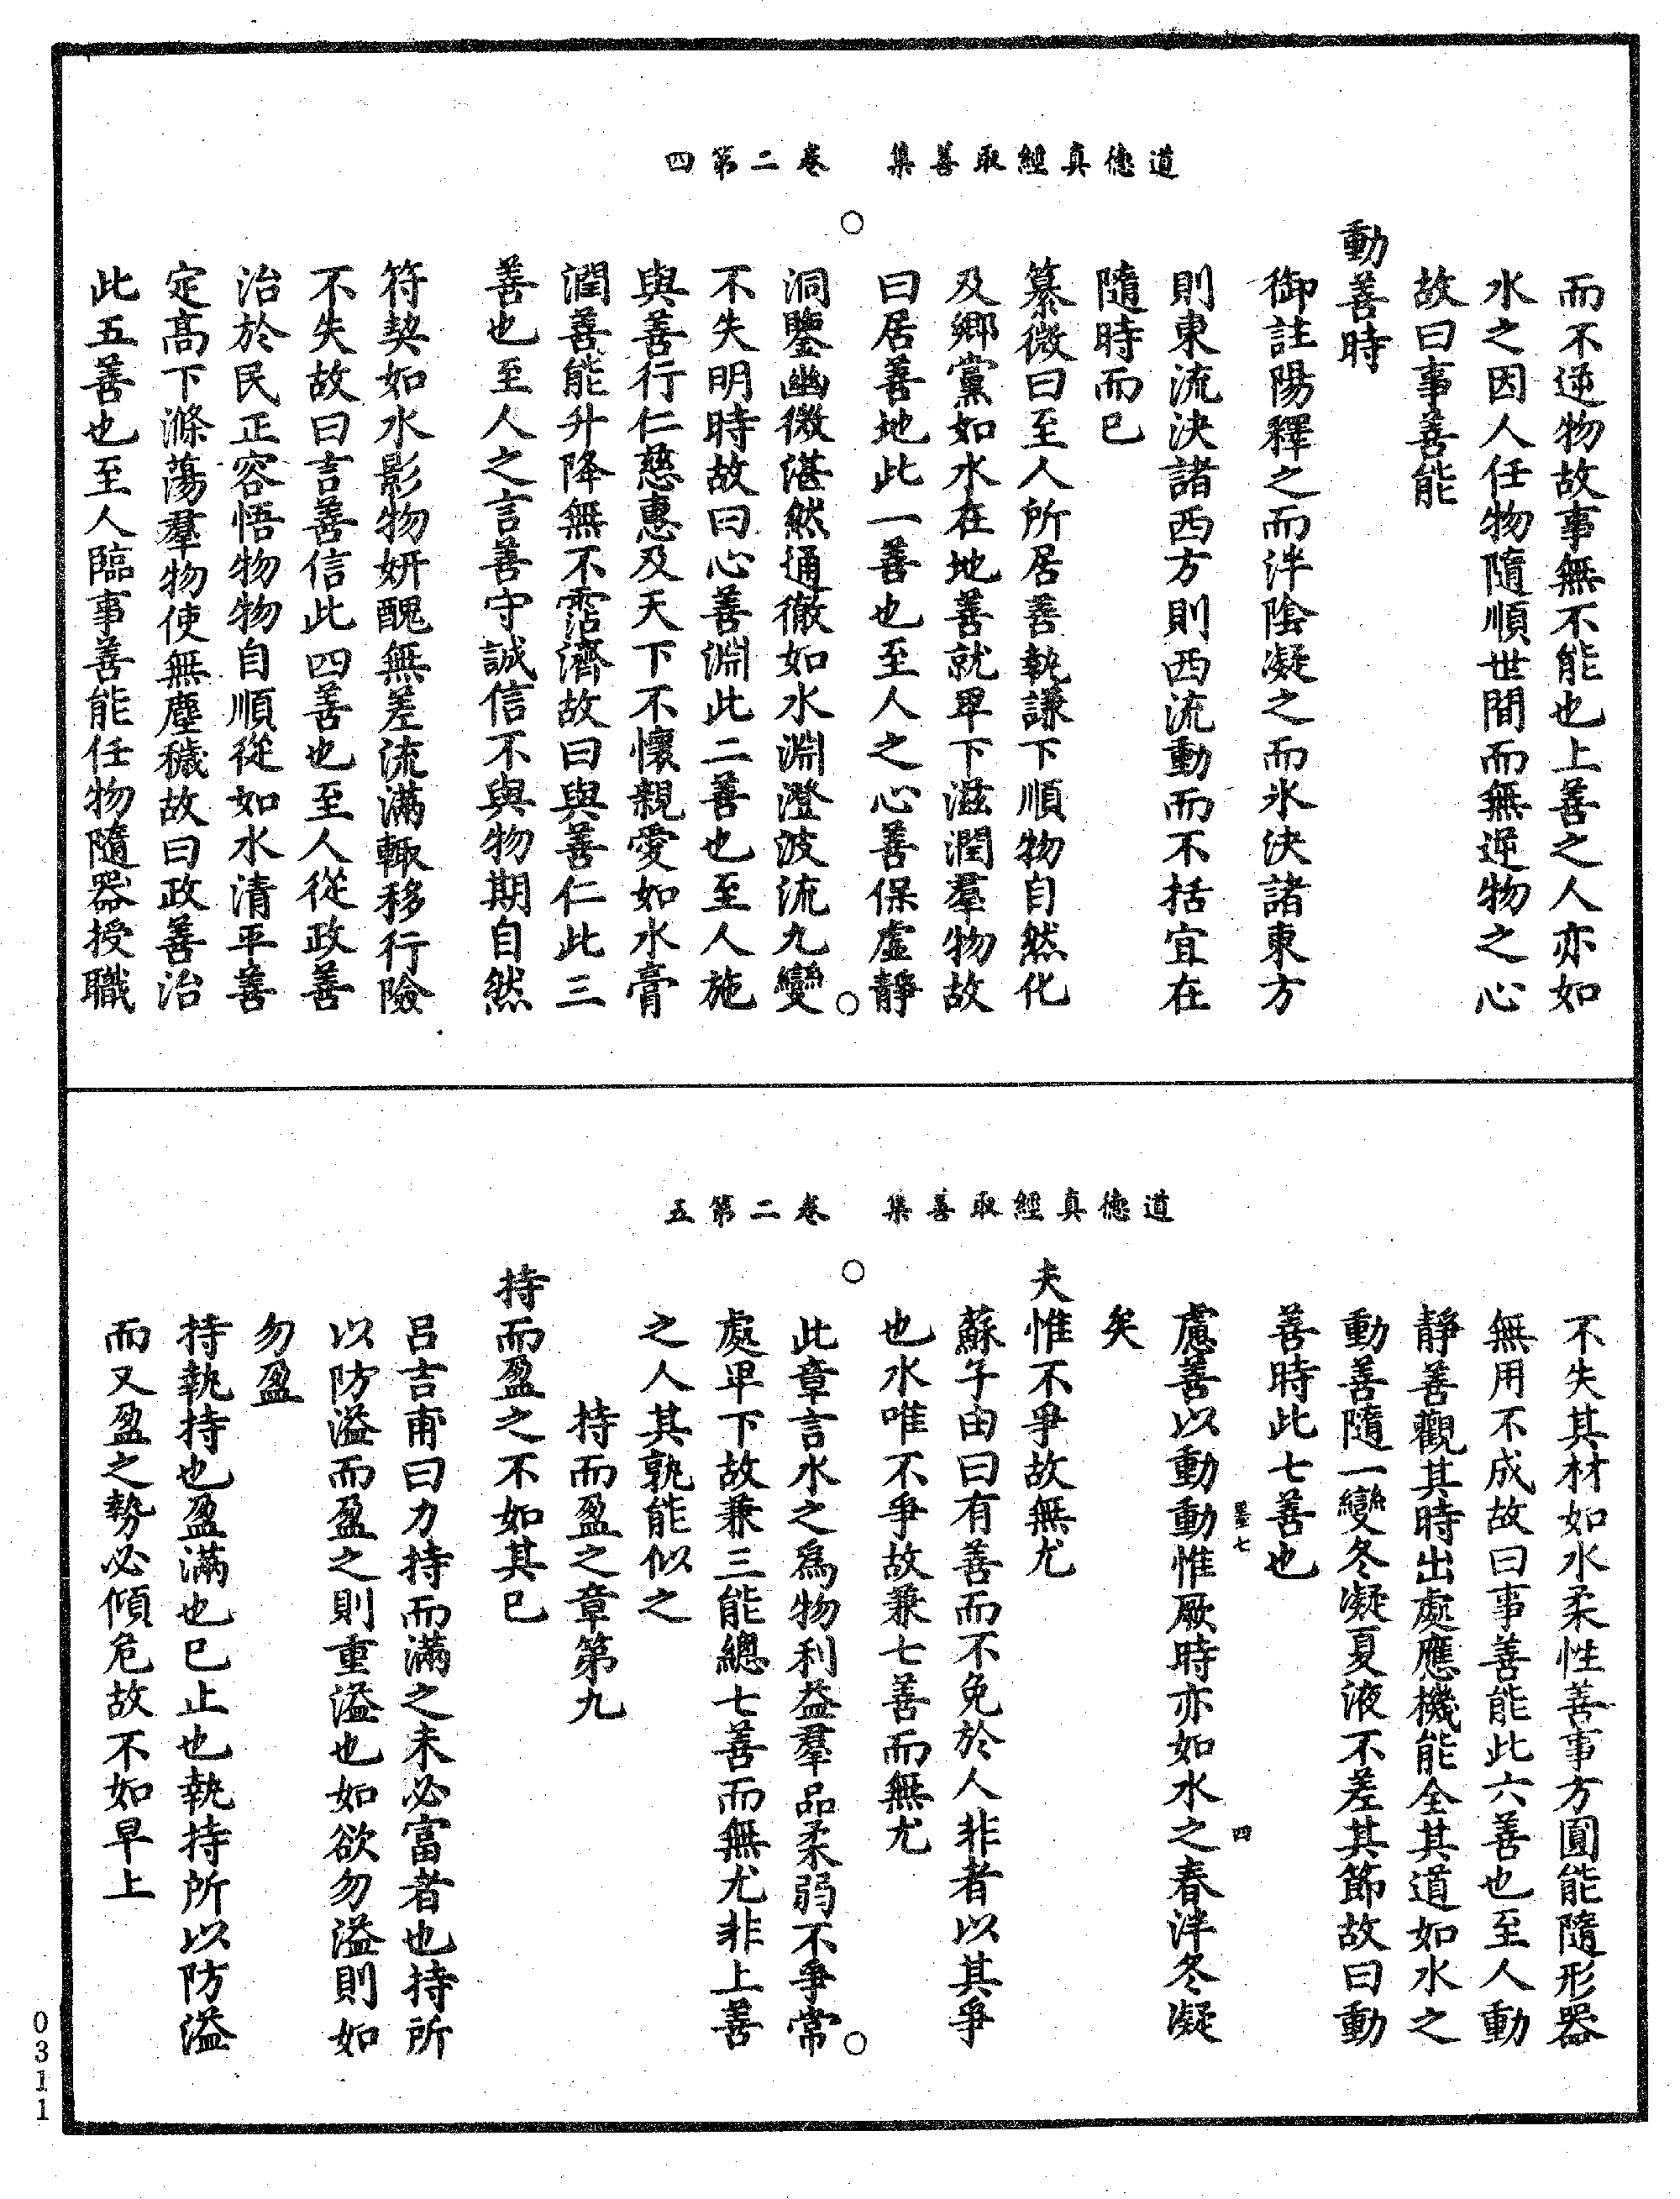 道德真經取善集　卷二第四
而不逆物故事無不能也上善之人亦如
水之因人任物隨順世間而無逆物之心
故曰事善能
動善時
御註陽釋之而泮陰凝之而氷決諸東方
則東流決諸西方則西流動而不括宜在
隨時而已
纂微曰至人所居善執謙下順物自然化
及鄉黨如水在地善就卑下滋潤羣物故
曰居善地此一善也至人之心善保虛靜
洞鑒幽微湛然通徹如水淵澄波流九變
不失明時故曰心善淵此二善也至人施
與善行仁慈惠及天下不懷親愛如水膏
潤善能升降無不霑濟故曰與善仁此三
善也至人之言善守誠信不與物期自然
符契如水影物妍醜無差流滿輙移行險
不失故曰言善信此四善也至人從政善
治於民正容悟物物自順從如水清平善
定髙下滌蕩羣物使無塵穢故曰政善治
此五善也至人臨事善能任物隨器授職
道德真經取善集　卷二第五
不失其材如水柔性善事方圓能隨形器
無用不成故曰事善能此六善也至人動
靜善觀其時出處應機能全其道如水之
動善隨一變冬凝夏液不差其節故曰動
善時此七善也
七　四
慮善以動動惟厥時亦如水之春泮冬凝
矣
夫惟不爭故無尤
蘇子由曰有善而不免於人非者以其爭
也水唯不爭故兼七善而無尤
此章言水之爲物利益羣品柔弱不爭常
處卑下故兼三能總七善而無尤非上善
之人其孰能似之
持而盈之章第九
持而盈之不如其已
呂吉甫曰力持而滿之未必富者也持所
以防溢而盈之則重溢也如欲勿溢則如
勿盈
持執持也盈滿也已止也執持所以防溢
而又盈之勢必傾危故不如早上
0311